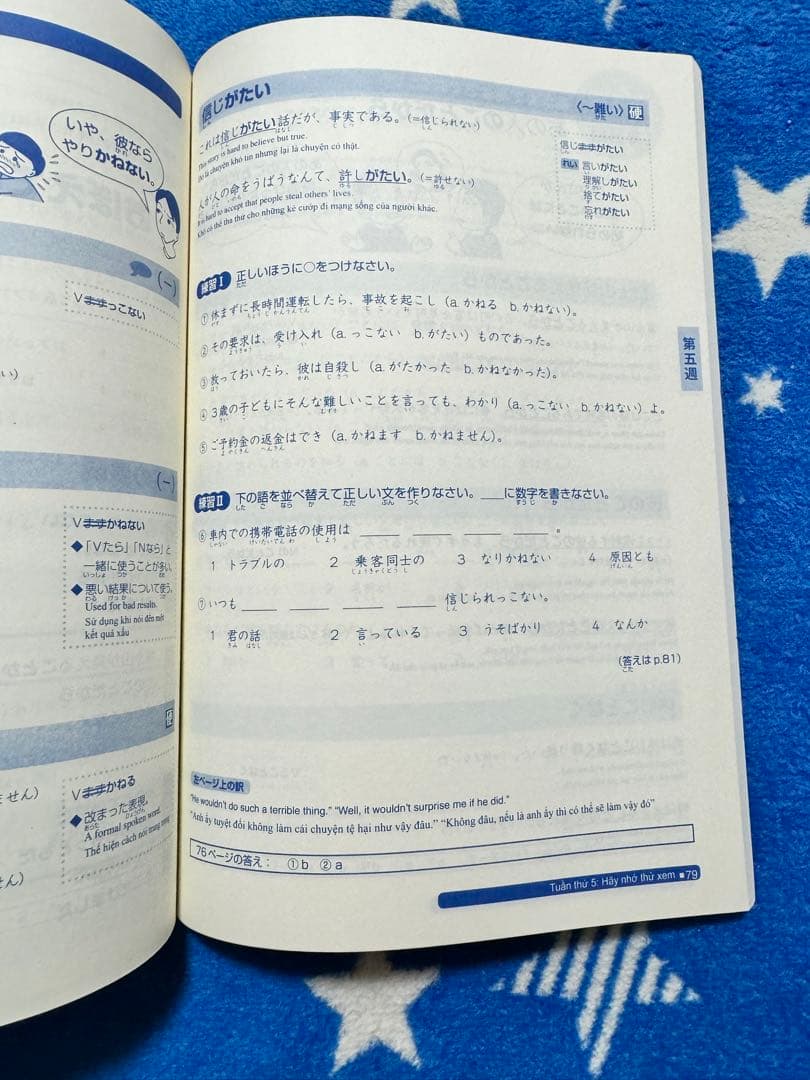 いや、彼なら
やりかねない。
(ー)
Vままっこない
い)
(ー)
Vままかねない
◆「Vたら」「Nなら」と
一緒に使うことが多い。
◆悪い結果について使う。
Used for bad results.
Sử dụng khi nói đến một
kết quả xấu
硬
ません)
Vままかねる
◆改まった表現
A formal spoken word.
Thể hiện cách nói trang trọng
せん)
信じがたい
〈〜難い〉硬
これは信じがたい話だが、事実である。(=信じられない)
This story is hard to believe but true.
Đó là chuyện khó tin nhưng lại là chuyện có thật.
人が人の命をうばうなんて、許しがたい。(=許せない)
It is hard to accept that people steal others' lives.
Khó có thể tha thứ cho những kẻ cướp đi mạng sống của người khác.
信じままがたい
れい 言いがたい
理解しがたい
捨てがたい
忘れがたい
練習Ⅰ 正しいほうに○をつけなさい。
①休まずに長時間運転したら、事故を起こし(a. かねる b. かねない)。
②その要求は、受け入れ(a. っこない b. がたい)ものであった。
③放っておいたら、彼は自殺し(a. がたかった b. かねなかった)。
④3歳の子どもにそんな難しいことを言っても、わかり(a. っこない b. かねない)よ。
⑤ご予約金の返金はでき(a. かねます b. かねません)。
第五週
練習Ⅱ 下の語を並べ替えて正しい文を作りなさい。___に数字を書きなさい。
⑥車内での携帯電話の使用は ___ ___ ___ ___。
1 トラブルの 2 乗客同士の 3 なりかねない 4 原因とも
⑦いつも ___ ___ ___ ___ 信じられっこない。
1 君の話 2 言っている 3 うそばかり 4 なんか
(答えは p.81)
左ページ上の訳
"He wouldn't do such a terrible thing." "Well, it wouldn't surprise me if he did."
"Anh ấy tuyệt đối không làm cái chuyện tệ hại như vậy đâu." "Không đâu, nếu là anh ấy thì có thể sẽ làm vậy đó"
76ページの答え: ①b ②a
Tuần thứ 5: Hãy nhớ thử xem ■79